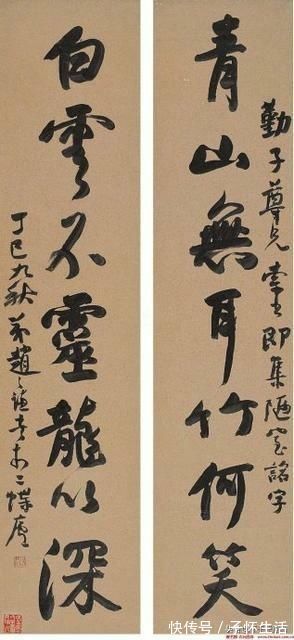 勤子尊兄索書即集陋室銘字
青山無耳竹何笑
白雲不靈龍以深
丁巳九秋弟趙之謙書于二蝶廬
快传号/子怀生活